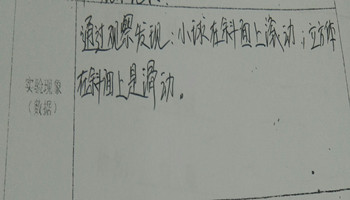 通过观察发现：小球在斜面上滚动；立方体
在斜面上是滑动。
实验现象
（数据）